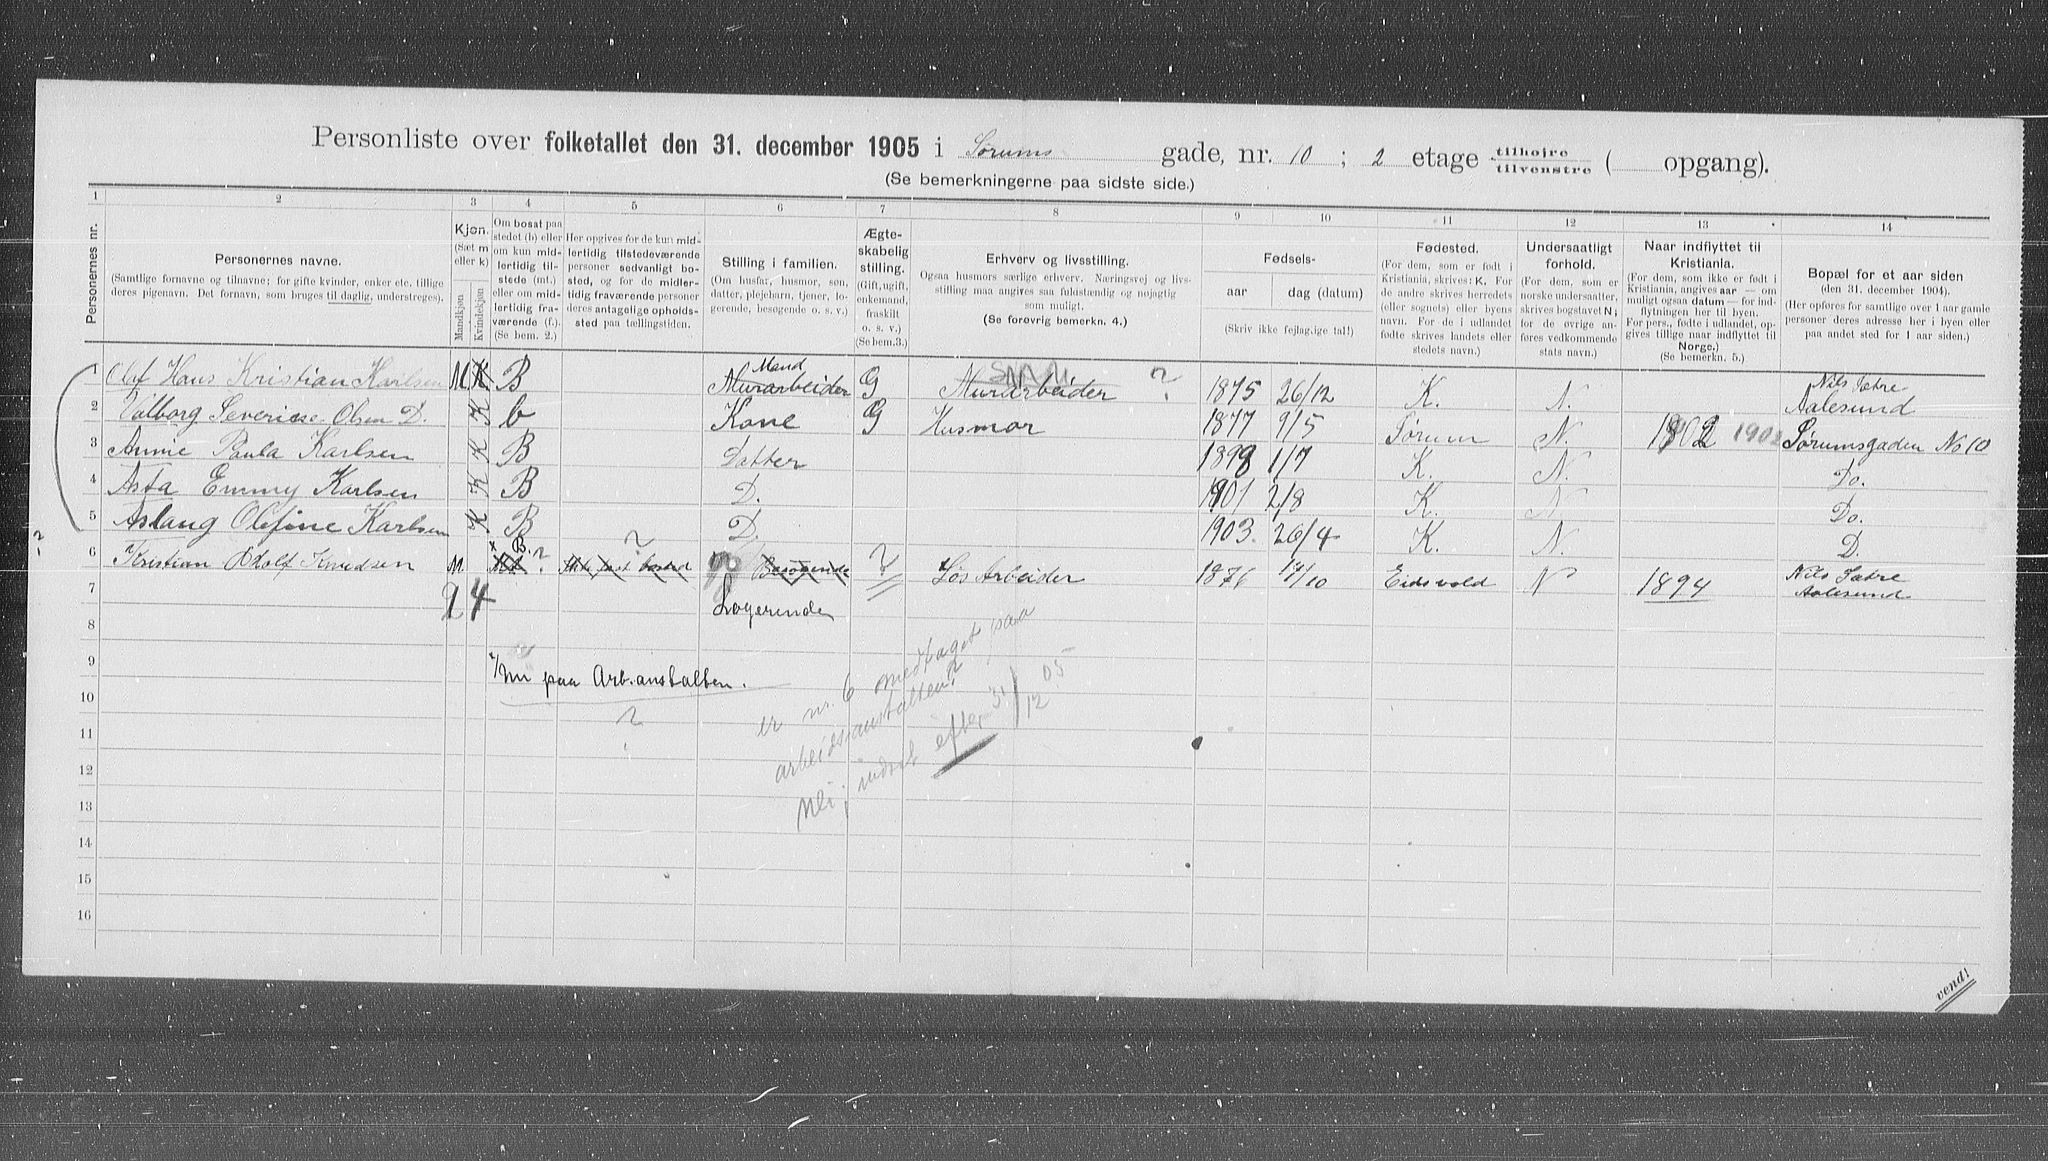 Personliste over folketallet den 31. december 1905 i Sørums gade, nr. 10 ; 2 etage tilhøjre / tilvenstre ( opgang).
(Se bemerkningerne paa sidste side.)
1 2 3 4 5 6 7 8 9 10 11 12 13 14
Personernes nr.
Personernes navne.
(Samtlige fornavne og tilnavne; for gifte kvinder, enker etc. tillige
deres pigenavn. Det fornavn, som bruges til daglig, understreges).
Kjøn.
(Sæt m
eller k)
Mandkjøn
Kvindekjøn
Om bosat paa
stedet (b) eller
om kun mid-
lertidig til-
stede (mt.)
eller om mid-
lertidig fra-
værende (f.).
(Se bem. 2.)
Her opgives for de kun mid-
lertidig tilstedeværende
personer sedvanligt bo-
sted, og for de midler-
tidig fraværende personer
deres antagelige opholds-
sted paa tællingstiden.
Stilling i familien.
(Om husfar, husmor, søn,
datter, plejebarn, tjener, lo-
gerende, besøgende o. s. v.)
Ægte-
skabelig
stilling.
(Gift, ugift,
enkemand,
fraskilt
o. s. v.)
(Se bem.3.)
Erhverv og livsstilling.
Ogsaa husmors særlige erhverv. Næringsvej og livs-
stilling maa angives saa fuldstændig og nøjagtig
som muligt.
(Se forøvrig bemerkn. 4.)
Fødsels-
aar
dag (datum)
(Skriv ikke fejlagtige tal!)
Fødested.
(For dem, som er født i
Kristiania, skrives: K. For
de andre skrives herredets
(eller sognets) eller byens
navn. For de i udlandet
fødte skrives landets eller
stedets navn.)
Undersaatligt
forhold.
(For de
norske undersaatter,
skrives bogstavet N;
for de øvrige an-
føres vedkommende
stats navn.)
Naar indflyttet til
Kristiania.
(For dem, som ikke er født i
Kristiania, angives aar — om
muligt ogsaa datum — for ind-
flytningen her til byen.
For pers., fødte i udlandet, op-
gives tillige naar indflyttet til
Norge.)
(Se bemerkn. 5.)
Bopæl for et aar siden
(den 31. december 1904).
(Her opføres for samtlige over 1 aar gamle
personer deres adresse her i byen eller
paa andet sted for 1 aar siden.)
1 Olaf Hans Kristian Karlsen M K B Mand Murarbeider G Murarbeider ? 1875 26/12 K. N. Nils Sætre Aalesund
2 Valborg Severine Olsen D. K b Kone G Husmor 1877 9/5 Sørum N. 1902 1902 Sørumsgaden No 10
3 Annie Paula Karlsen K B Datter 1898 1/7 K. N. Do.
4 Asta Emmy Karlsen K B D. 1901 2/8 K. N Do.
5 Aslaug Olefine Karlsen K B D. 1903. 26/4 K. N. D.
- ?
6 Kristian Adolf Knudsen M. × B. ? ? Besøgende ? Løs Arbeider 1876 /10 Eidsvold N 1894 Nils Sætre Aalesund
7 2 4 Logerende
8
9
×/ Nu paa Arb.anstalten.
?
10
er nr. 6 medtaget paa
arbeidsanstalten?
Nei; indsat efter 31/12 05
11
12
13
14
15
16
vend!